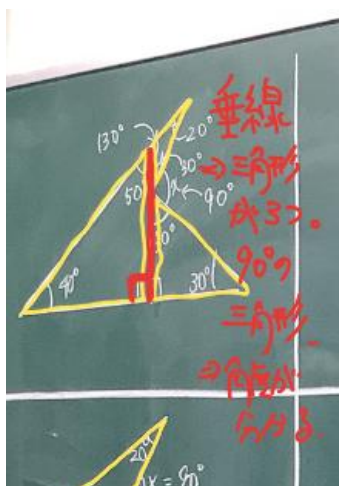 130°
20°
30°
x
90°
50
40°
30°
垂線
⇒三角形
が3つ。
90°の
三角形
⇒角度が
20°
x = 80°